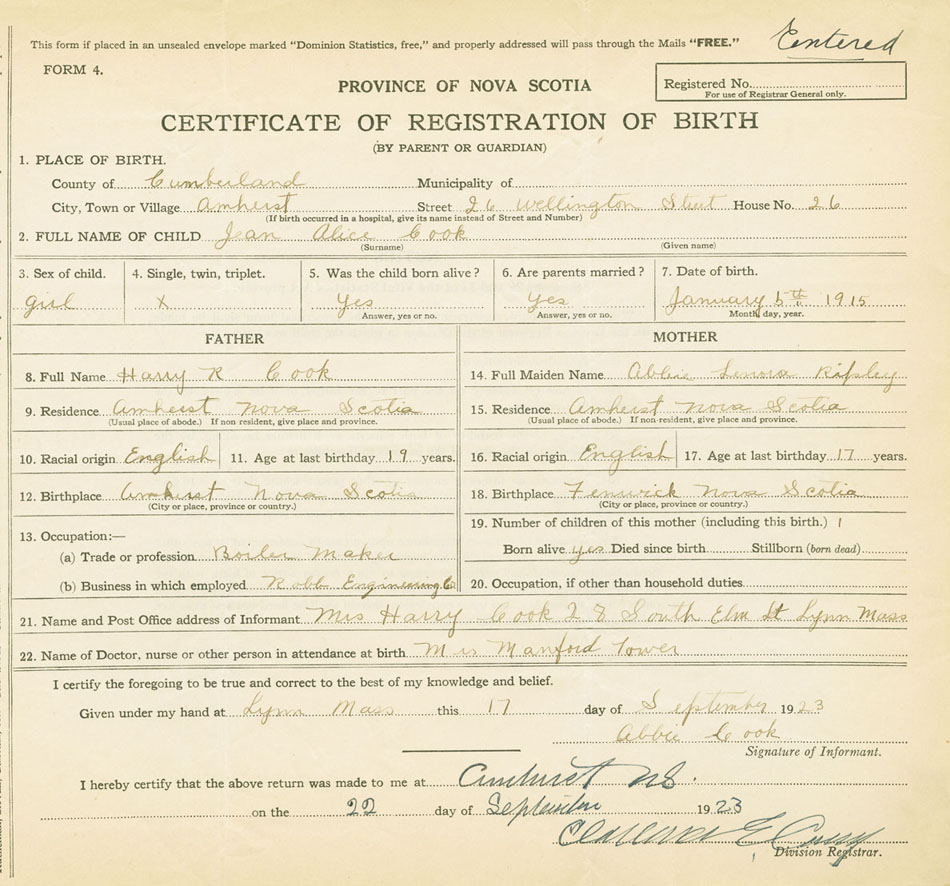 This form if placed in an unsealed envelope marked "Dominion Statistics, free," and properly addressed will pass through the Mails "FREE."
Entered
FORM 4.
PROVINCE OF NOVA SCOTIA
Registered No.
For use of Registrar General only.
CERTIFICATE OF REGISTRATION OF BIRTH
(BY PARENT OR GUARDIAN)
1. PLACE OF BIRTH.
County of Cumberland Municipality of
City, Town or Village Amherst Street 26 Wellington Street House No. 26
(If birth occurred in a hospital, give its name instead of Street and Number)
2. FULL NAME OF CHILD Jean Alice Cook
(Surname) (Given name)
3. Sex of child. 4. Single, twin, triplet. 5. Was the child born alive? 6. Are parents married? 7. Date of birth.
girl x Yes Yes January 5th 1915
Answer, yes or no. Answer, yes or no. Month, day, year.
FATHER MOTHER
8. Full Name Harry R Cook
14. Full Maiden Name Abbie Lenora Ripley
9. Residence Amherst Nova Scotia
(Usual place of abode.) If non resident, give place and province.
15. Residence Amherst Nova Scotia
(Usual place of abode.) If non-resident, give place and province.
10. Racial origin English 11. Age at last birthday 19 years.
16. Racial origin English 17. Age at last birthday 17 years.
12. Birthplace Amherst Nova Scotia
(City or place, province or country.)
18. Birthplace Fenwick Nova Scotia
(City or place, province or country.)
13. Occupation:—
(a) Trade or profession Boiler Maker
(b) Business in which employed Robb Engineering Co
19. Number of children of this mother (including this birth.) 1
Born alive yes Died since birth Stillborn (born dead)
20. Occupation, if other than household duties
21. Name and Post Office address of Informant Mrs Harry Cook 28 South Elm St Lynn Mass
22. Name of Doctor, nurse or other person in attendance at birth Mrs Manford Tower
I certify the foregoing to be true and correct to the best of my knowledge and belief.
Given under my hand at Lynn Mass this 17 day of September 1923
Abbie Cook
Signature of Informant.
I hereby certify that the above return was made to me at Amherst NS.
on the 22 day of September 1923
Division Registrar.